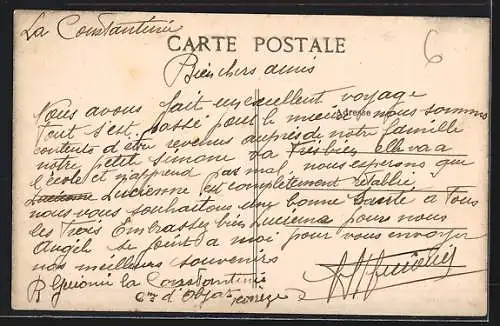 La Constantinie
6
CARTE POSTALE
Bien chers amis
Adresse
Nous avons fait un excellent voyage
Tout s'est passé pour le mieux nous sommes
contents d'être revenus auprès de notre famille
notre petite Simone va très bien elle va a
l'école et n'apprend pas mal nous esperons que
Lucienne Lucienne est complètement rétablie
nous vous souhaitons une bonne Santé à Tous
les Trois Embrassez bien Lucienne pour nous
Angèle se joint a moi pour vous envoyer
nos meilleurs souvenirs
la Constantinie
Cne d'Objat Corrèze